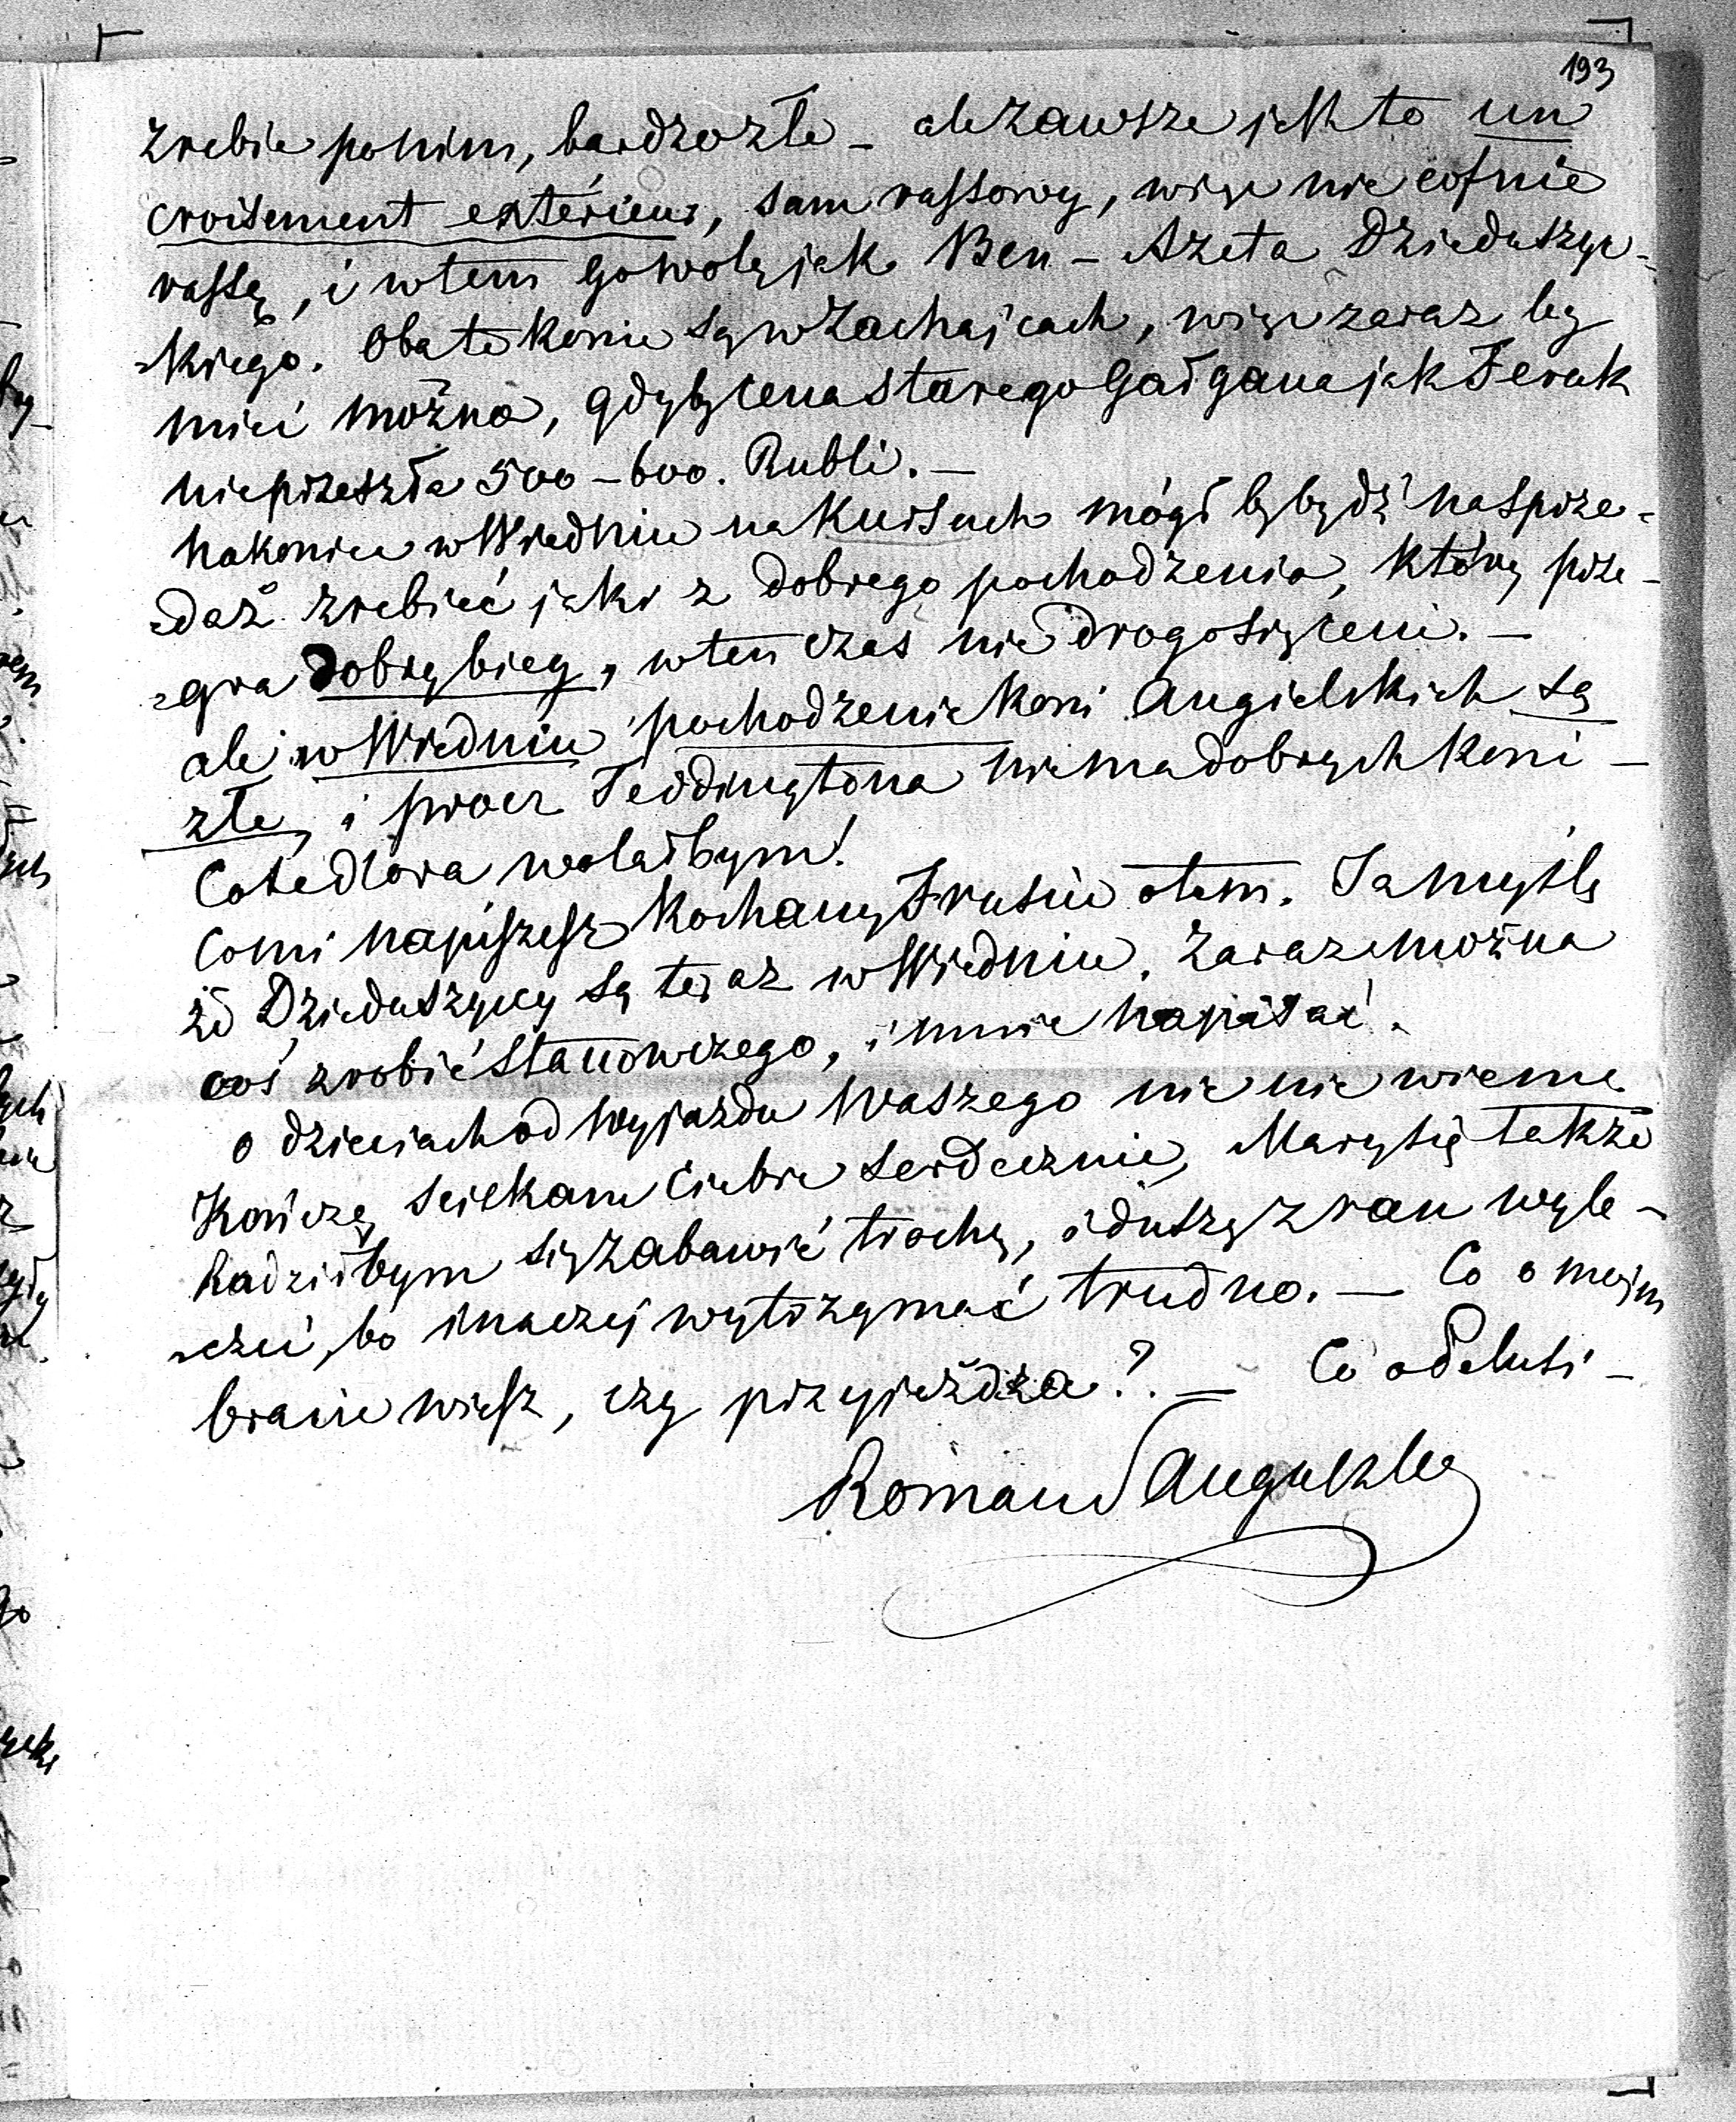 193
zrebie ponim, bardzo złe – ale zawsze jest to un
croisement extérieur, sam rassowy, więc nie cofnie
rassę, i w tem go wolę jak Ben-Azeta Dzieduszyc-
-kiego. Oba te konie są w Zachajcach, więc zaraz by
mieć można, gdyby cena starego Gałgana jak Feruk
nieprzeszła 500–600. Rubli. –
nakoniec w Wiedniu na Kursach mógł by bydź na sprze-
-daż zrebieć jaki z dobrego pochodzenia, który prze-
-gra dobry bieg, w ten czas nie drogo się ceni. –
ale w Wiedniu pochodzenie koni Angielskich są
złe, i procz Teddingtona niema dobrych koni –
Cotedlora wolałbym!
Co mi napiszesz kochany Frusiu o tem. Ja myślę
że Dzieduszycy są teraz w Wiedniu. Zaraz można
coś zrobić stanowczego, i mnie napisać.
o dzieciach od wyjazdu Waszego nic nie wiemy
Kończę, sciskam Ciebie serdecznie, Marysię także
Radziłbym się zabawić trochę, i duszę z ran wyle-
-czeć, bo inaczej wytrzymać trudno. – Co o mojm
bracie wiesz, czy przyjeżdża?. – Co o Helusi –
Roman Sanguszko